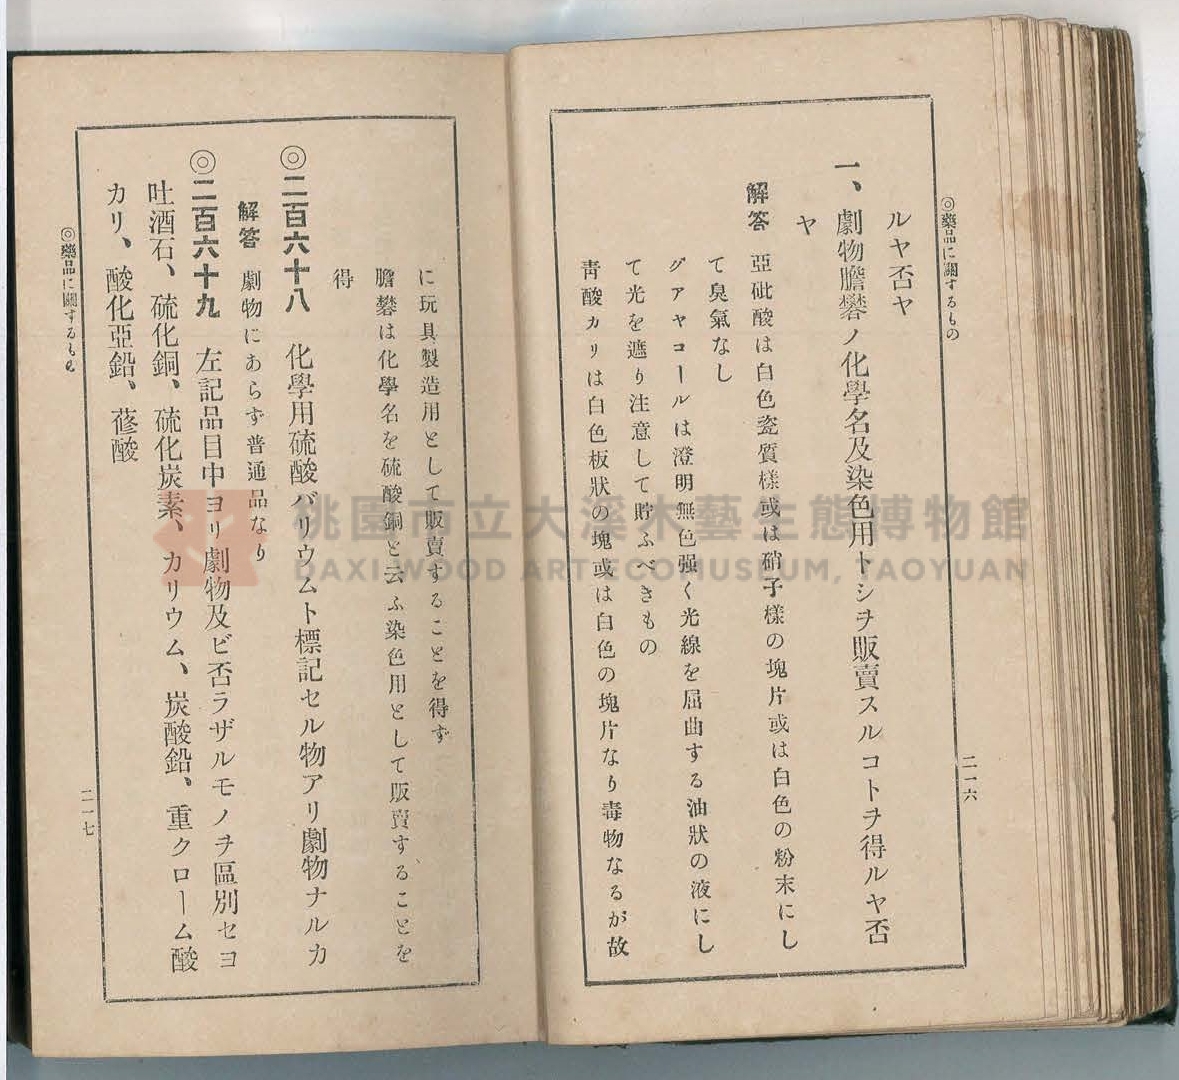 ◎藥品に關するもの
ルヤ否ヤ
一、劇物膽礬ノ化學名及染色用トシヲ販賣スルコトヲ得ルヤ否
ヤ
解答 亞砒酸は白色瓷質樣或は硝子樣の塊片或は白色の粉末にし
て臭氣なし
グアヤコールは澄明無色强く光線を屈曲する油狀の液にし
て光を遮り注意して貯ふべきもの
靑酸カリは白色板狀の塊或は白色の塊片なり毒物なるが故
二一六
に玩具製造用として販賣することを得ず
膽礬は化學名を硫酸銅と云ふ染色用として販賣することを
得
◎二百六十八 化學用硫酸バリウムト標記セル物アリ劇物ナルカ
解答 劇物にあらず普通品なり
◎二百六十九 左記品目中ヨリ劇物及ビ否ラザルモノヲ區別セヨ
吐酒石、硫化銅、硫化炭素、カリウム、炭酸鉛、重クローム酸
カリ、酸化亞鉛、蓚酸
◎藥品に關するもの
二一七
桃園市立大溪木藝生態博物館
DAXI WOOD ART ECOMUSEUM, TAOYUAN